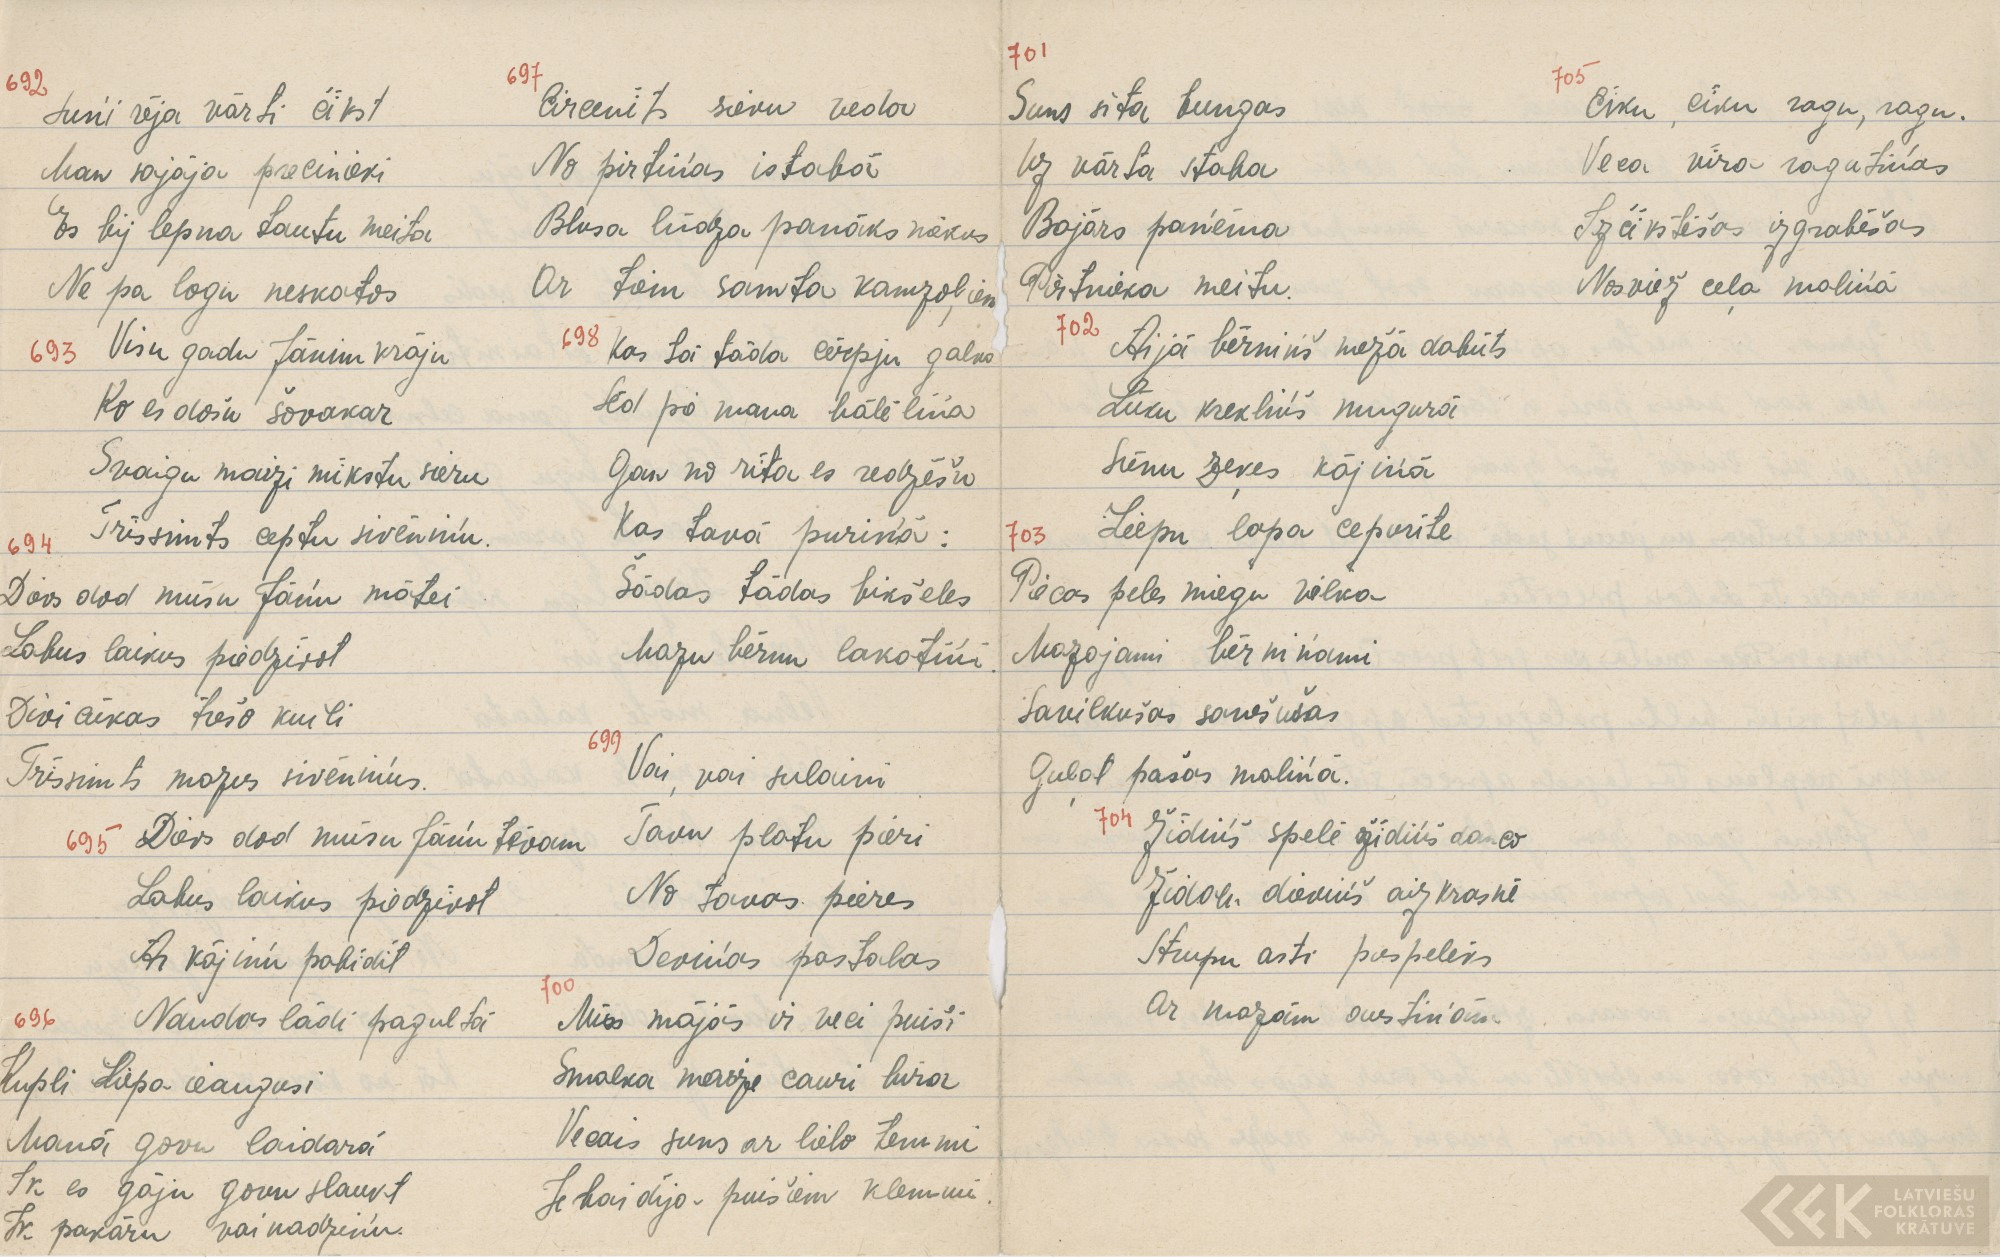 692
Suņi rēja vārti čīkst
Man sajāja precinieki
Es bij lepna tautu meita
Ne pa logu neskatos
693
Visu gadu Jānim krāju
Ko es došu šovakar
Svaigu maizi mīkstu sieru
Trīssimts ceptu sivēniņu.
694
Dievs dod mūsu Jāņu mātei
Labus laikus piedzīvot
Divi cūkas trešo kuili
Trīssimts mazus sivēniņus.
695
Dievs dod mūsu Jāņu tēvam
Labus laikus piedzīvot
Ar kājiņu pabīdīt
Naudas lādi pagultā
696
Kupli Liepa ieaugusi
Manā govu laidarā
Ik es gāju govu slaukt
Ik pakāru vainadziņu.
697
Circenīts sievu veda
No pirtiņas istabā
Blusa lūdza panāksniekus
Ar tiem samta kamzoļiem
698
Kas tā tāda cērpju galva
Sēd pie mana bālēliņa
Gan no rīta es redzēšu
Kas tavā pūriņā:
Šādas tādas bikšeles
Mazu bērnu lakatiņi.
699
Vai, vai sulaini
Tavu platu pieri
No tavas pieres
Deviņas pastalas
700
Mūs mājās ir veci puiši
Smalka maize cauri bira
Vecais suns ar lielo lemmi
Iebaidīja puišiem klemmi.
701
Suns sita bungas
Uz vārta staba
Bajārs paņēma
Pirtnieka meitu.
702
Aijā bērniņš mežā dabūts
Lūku krekliņš mugurā
Sūnu zeķes kājiņā
Liepu lapa cepurīte
703
Piecas peles miegu vilka
Mazajami bērniņami
Savilkušas sanesušas
Guļat pašas maliņā.
704
Žīdiņš spēlē žīdiņš danco
Žīdam dieviņš aizkrāsnē
Strupu asti puspelēks
Ar mazām austiņām
705
Čīku, čīku ragu, ragu.
Veca vīra ragutiņas
Izčīkstēšas izgrabēšas
Nosviež ceļa maliņā
LATVIEŠU
FOLKLORAS
KRĀTUVE